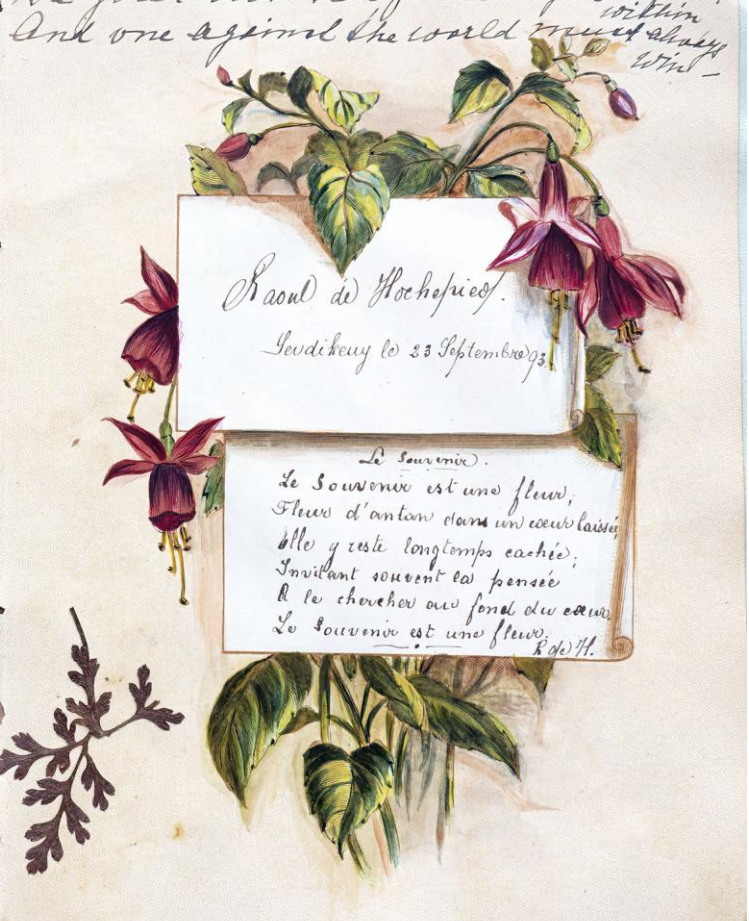 within
And one against the world must always
win –
Raoul de Hochepied.
Sevdikeuy le 23 Septembre 93.
Le Souvenir.
Le Souvenir est une fleur,
Fleur d'antan dans un cœur laissée,
Elle y reste longtemps cachée;
Invitant souvent la pensée
A le chercher au fond du cœur
Le Souvenir est une fleur.
R de H.